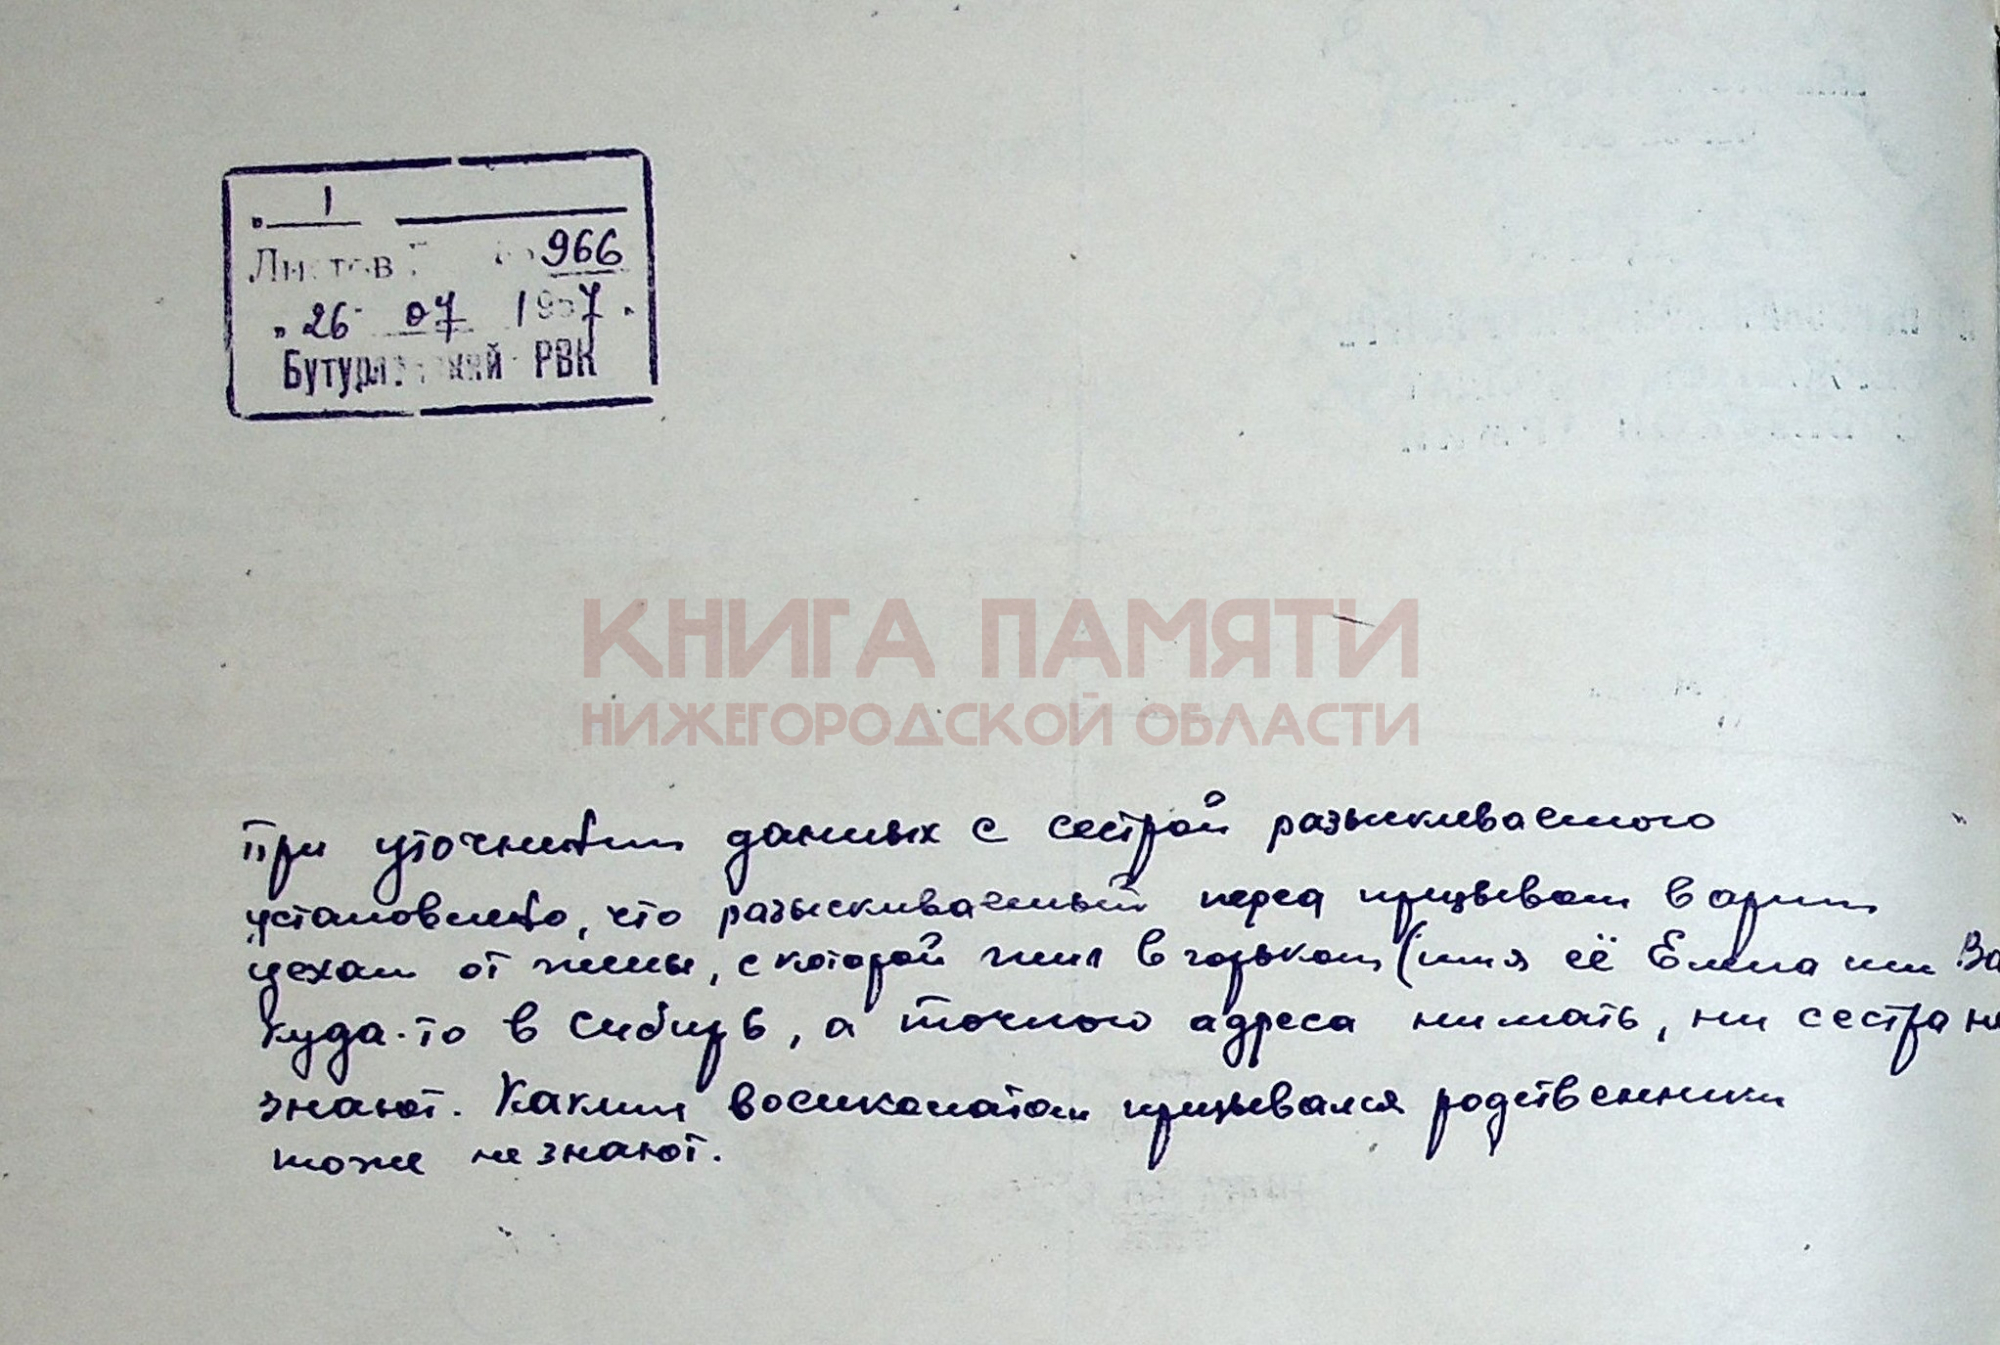 1
Листов 966
„26" 07 1957.
Бутурлинский РВК
КНИГА ПАМЯТИ
НИЖЕГОРОДСКОЙ ОБЛАСТИ
При уточнении данных с сестрой разыскиваемого
установлено, что разыскиваемый перед призывом в армию
уехал от жены, с которой жил в горьком (имя её Елена или Ва
куда-то в Сибирь, а точного адреса ни мать, ни сестра не
знают. Каким военкоматом призывался родственники
тоже не знают.